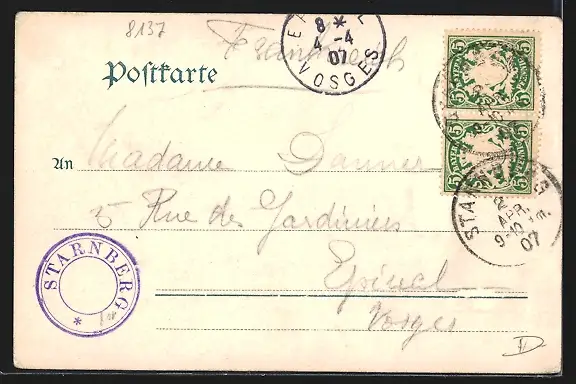 8137
Frankreich
Postkarte
8 *
4 -4
07
VOSGES
5 5
5 5
An Madame Danner
5 Rue des Jardiniers
Epinal
Vosges
STARNBERG
*
STARNBERG
APR.
9-10
07
D